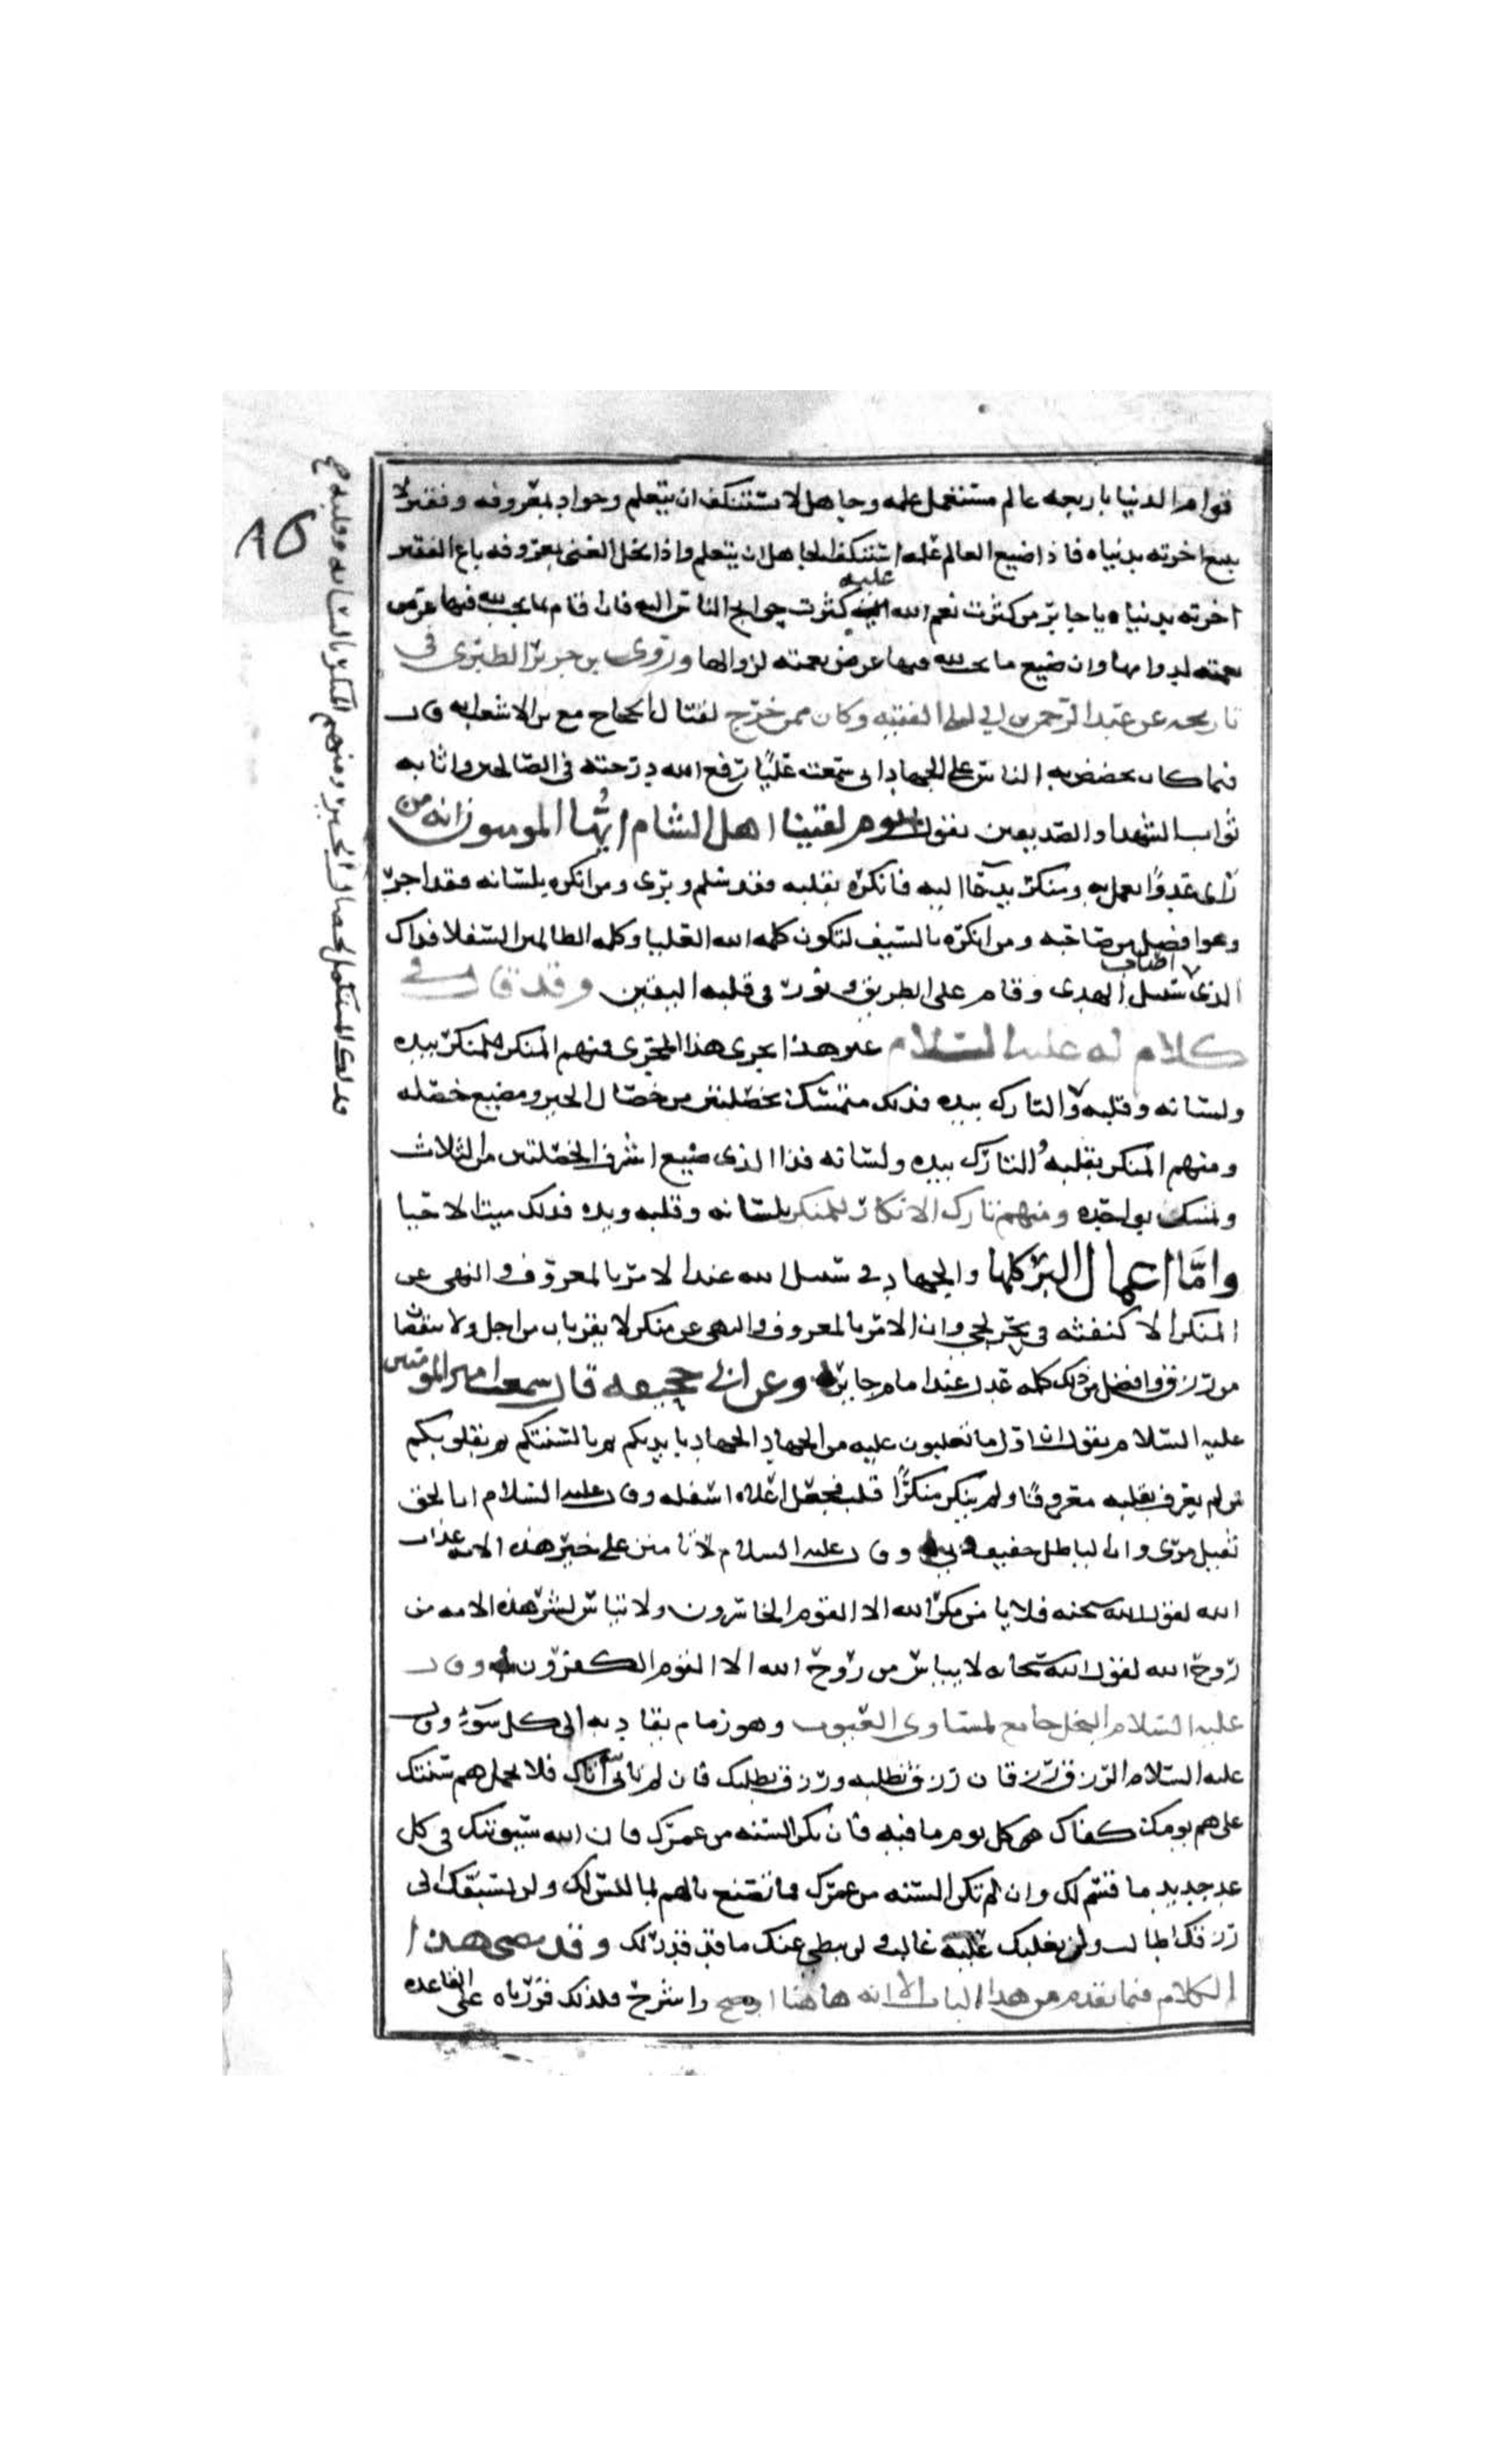 قوام الدنيا باربعه عالم مستعمل علمه وجاهل لا يستنكف ان يتعلم وجواد بمعروفه وفقير لا
يبيع اخرته بدنياه فاذا ضيع العالم علمه استنكف الجاهل ان يتعلم واذا بخل الغنى بمعروفه باع الفقير
اخرته بدنياه يا جابر من كثرت نعم الله عليه كثرت حوايج الناس اليه فان قام بما يجب لله فيها عرض
نعمته لدوامها وان ضيع ما يجب لله فيها عرض نعمته لزوالها وروى بن جرير الطبري في
تاريخه عن عبد الرحمن بن ابي ليلى الفقيه وكان ممن خرج لقتال الحجاج مع بن الاشعث انه قال
فيما كان يحضض به الناس على الجهاد اني سمعت عليًا رفع الله درجته في الصالحين واثابه
ثواب الشهدا والصديقين يقول يوم لقينا اهل الشام ايُّها المومنون انه من
راى عدوًا يعمل به ومنكر يدعا اليه فانكره بقلبه فقد سلم وبرى ومن انكره بلسانه فقد اجر
وهو افضل من صاحبه ومن انكره بالسيف لتكون كلمه الله العليا وكلمه الظالمين السفلا فذاك
الذى اصاب سبيل الهدى وقام على الطريق ونور في قلبه اليقين وقد قال في
كلام له عليه السلام غير هذا يجرى هذا المجرى فمنهم المنكر للمنكر بيده
ولسانه وقلبه والتارك بيده فذلك متمسك بخصلتين من خصال الخير ومضيع خصله
ومنهم المنكر بقلبه والتارك بيده ولسانه فذا الذى ضيع اشرف الخصلتين من الثلاث
وتمسك بواحده ومنهم تارك الانكار للمنكر بلسانه وقلبه ويده فذلك ميت الاحيا
وامَّا اعمال البر كلها والجهاد في سبيل الله عند الامر بالمعروف والنهى عن
المنكر الا كنفثه في بحر لجي وان الامر بالمعروف والنهى عن منكر لا يقربان من اجل ولا ينقصان
من رزق وافضل من ذلك كلمه عدل عند امام جاير وعن ابي جحيفه قال سمعت امير المومنين
عليه السلام يقول ان اول ما تغلبون عليه من الجهاد الجهاد بايديكم ثم بالسنتكم ثم بقلوبكم
فمن لم يعرف بقلبه معروفًا ولم ينكر منكرًا قلب فجعل اعلاه اسفله وقال عليه السلام ان الحق
ثقيل مرى وان الباطل خفيف وبى وقال عليه السلام لا تامنن على خير هذه الامه عذاب
الله لقول الله سبحنه فلا يامن مكر الله الا القوم الخاسرون ولا تياس لشر هذه الامه من
روح الله لقول الله سبحانه لا يياس من روح الله الا القوم الكفرون وقال
عليه السلام البخل جامع لمساوى العيوب وهو زمام يقاد به الى كل سوء وقال
عليه السلام الرزق رزقان رزق تطلبه ورزق يطلبك فان لم تاته اتاك فلا تحمل هم سنتك
على هم يومك كفاك كل يوم ما فيه فان تكن السنه من عمرك فان الله سيوتيك في كل
غد جديد ما قسم لك وان لم تكن السنه من عمرك فما تصنع بالهم لما ليس لك ولن يسبقك الى
رزقك طالب ولن يغلبك عليه غالب ولن يبطى عنك ما قد قدر لك وقد مضى هذا
الكلام فيما تقدم من هذا الباب الا انه هاهنا اوضح واشرح فلذلك قررناه على القاعده
فذلك المستكمل لخصال الخير ومنهم المنكر بلسانه وقلبه